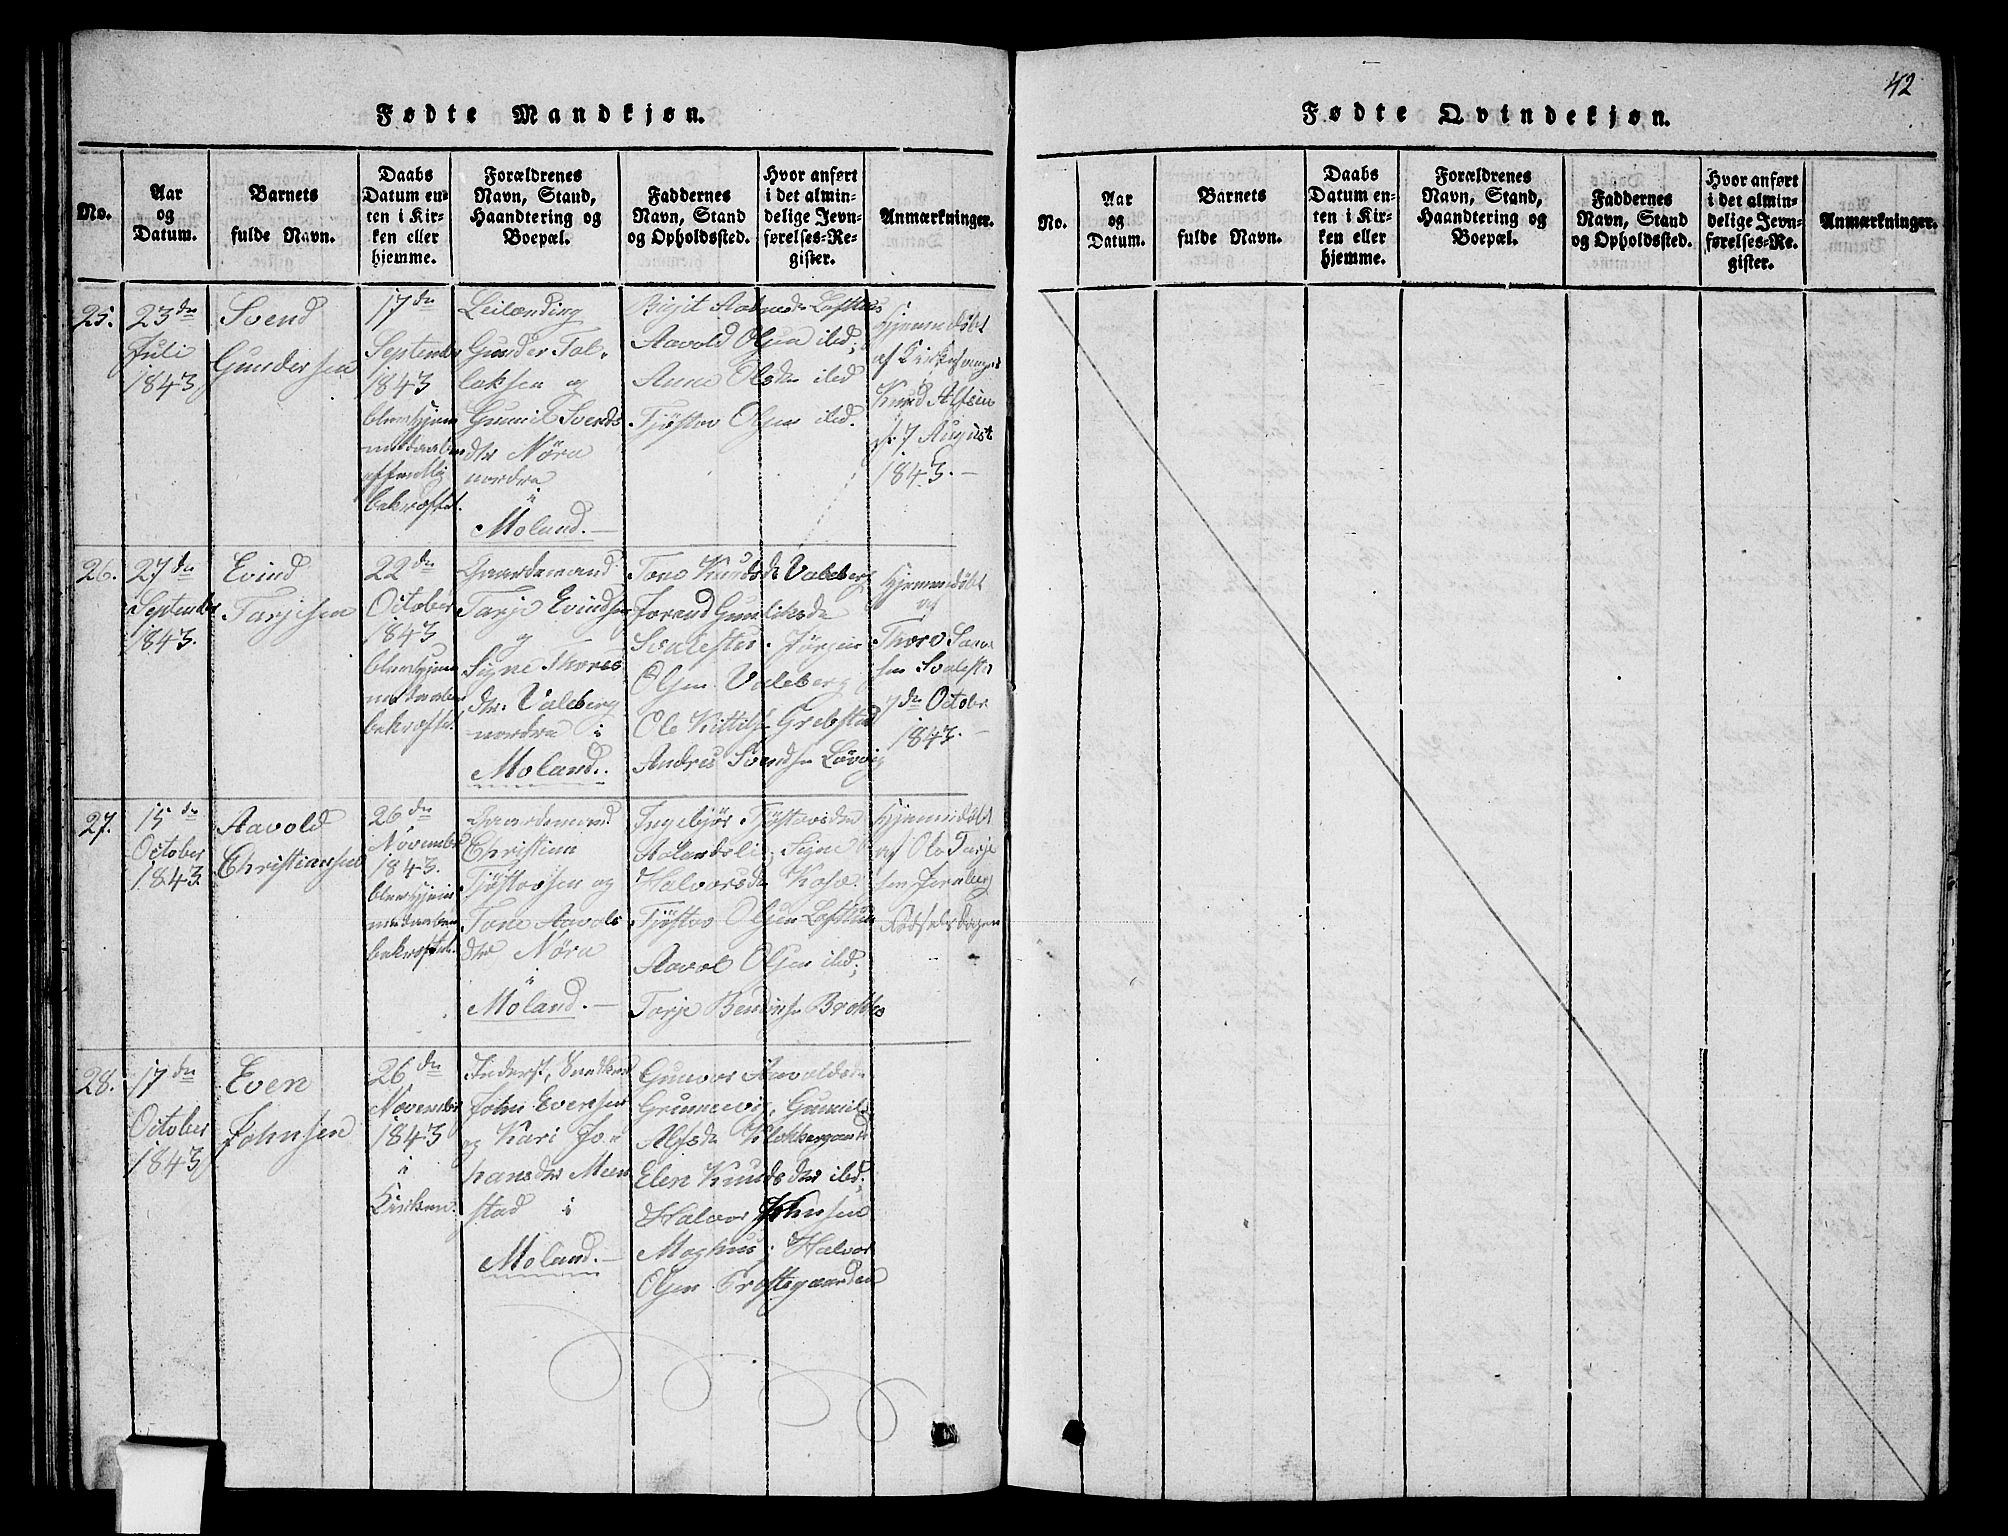 42
Fødte Mandkjøn.
No.
Aar
og
Datum.
Barnets
fulde Navn.
Daabs
Datum en-
ten i Kir-
ken eller
hjemme.
Forældrenes
Navn, Stand,
Haandtering og
Boepæl.
Faddernes
Navn, Stand
og Opholdssted.
Hvor anført
i det almin-
delige Jevn-
førelses-Re-
gister.
Anmærkninger.
25.
23de
Juli
1843
Svend
Gundersen
17de
September
1843
blev hjem-
medaaben
offentlig
bekræftet.
Leilænding
Gunder Tal-
laksen og
Gunnil Svends
dtr Nöra
nordre
i
Moland.
Birgit Aabneds Lofthus
Aavold Olsen ibd;
Anne Olsdr ibd
Tjöstov Olsen ibd.
Hjemmedöbt
af Kirkesanger
Knud Alfsen
d. 7 August
1843.
26.
27de
September
1843.
Evind
Tarjesen
22de
October
1843
blev hjem-
medaaben
bekræftet.
Gaardemand
Tarje Evindsen
og
Signe Thores
dtr. Valeberg
nordre i
Moland.
Tone Knudsdr Valeberg
Jorand Gunliksdr
Svalestu. Jörgen
Olsen Valeberg
Ole Kittils. Grebstad
Andres Svendsen Lövvig
Hjemmedöbt
af
Thore Saave
sen Svalestu
7de October
1843.
27.
15de
October
1843.
Aavold
Christiansen
26de
Novembr
1843.
blev hjem-
medaaben
bekræftet.
Gaardemand
Christian
Tjöstovsen og
Tone Aavols
dtr Nöra
i
Moland.
Ingebjör Tjöstovsdr
Aalandsli; Signe
Halvorsdr Kose.
Tjöstov Olsen Lofthus
Aavol Olsen ibd;
Tarje Bendixsen Brokke
Hjemmedöbt
af Ole Tarje
sen Fernberg
Födselsdagen
28.
17de
October
1843
Even
Johnsen
26de
November
1843
i
Kirken.
Inderst, Snedker
John Evensen
og Kari Jo-
hansdtr Meen
stad i
Moland.
Gunvor Aavoldsdr
Grunnevig, Gunnil
Alfsdr Klokkergaarden
Elen Knudsdtr ibd;
Halvor Johnsen
Moghus; Halvor
Olsen Prostegaarden
Fødte Qvindekjøn.
No.
Aar
og
Datum.
Barnets
fulde Navn.
Daabs
Datum en-
ten i Kir-
ken eller
hjemme.
Forældrenes
Navn, Stand,
Haandtering og
Boepæl.
Faddernes
Navn, Stand
og Opholdssted.
Hvor anført
i det almin-
delige Jevn-
førelses-Re-
gister.
Anmærkninger.